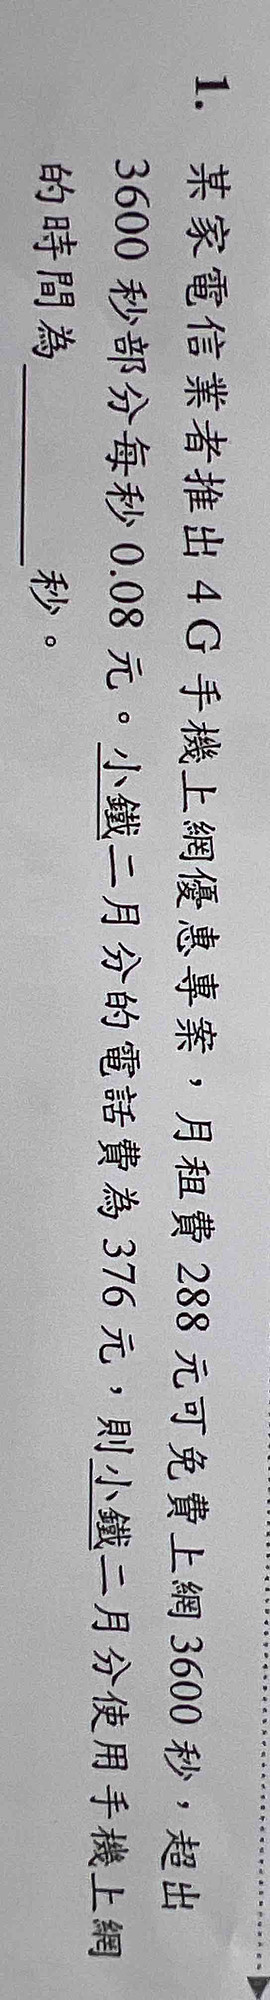 1. 某家電信業者推出4G手機上網優惠專案，月租費288元可免費上網3600秒，超出
3600秒部分每秒0.08元。小鐵二月分的電話費為376元，則小鐵二月分使用手機上網
的時間為________秒。